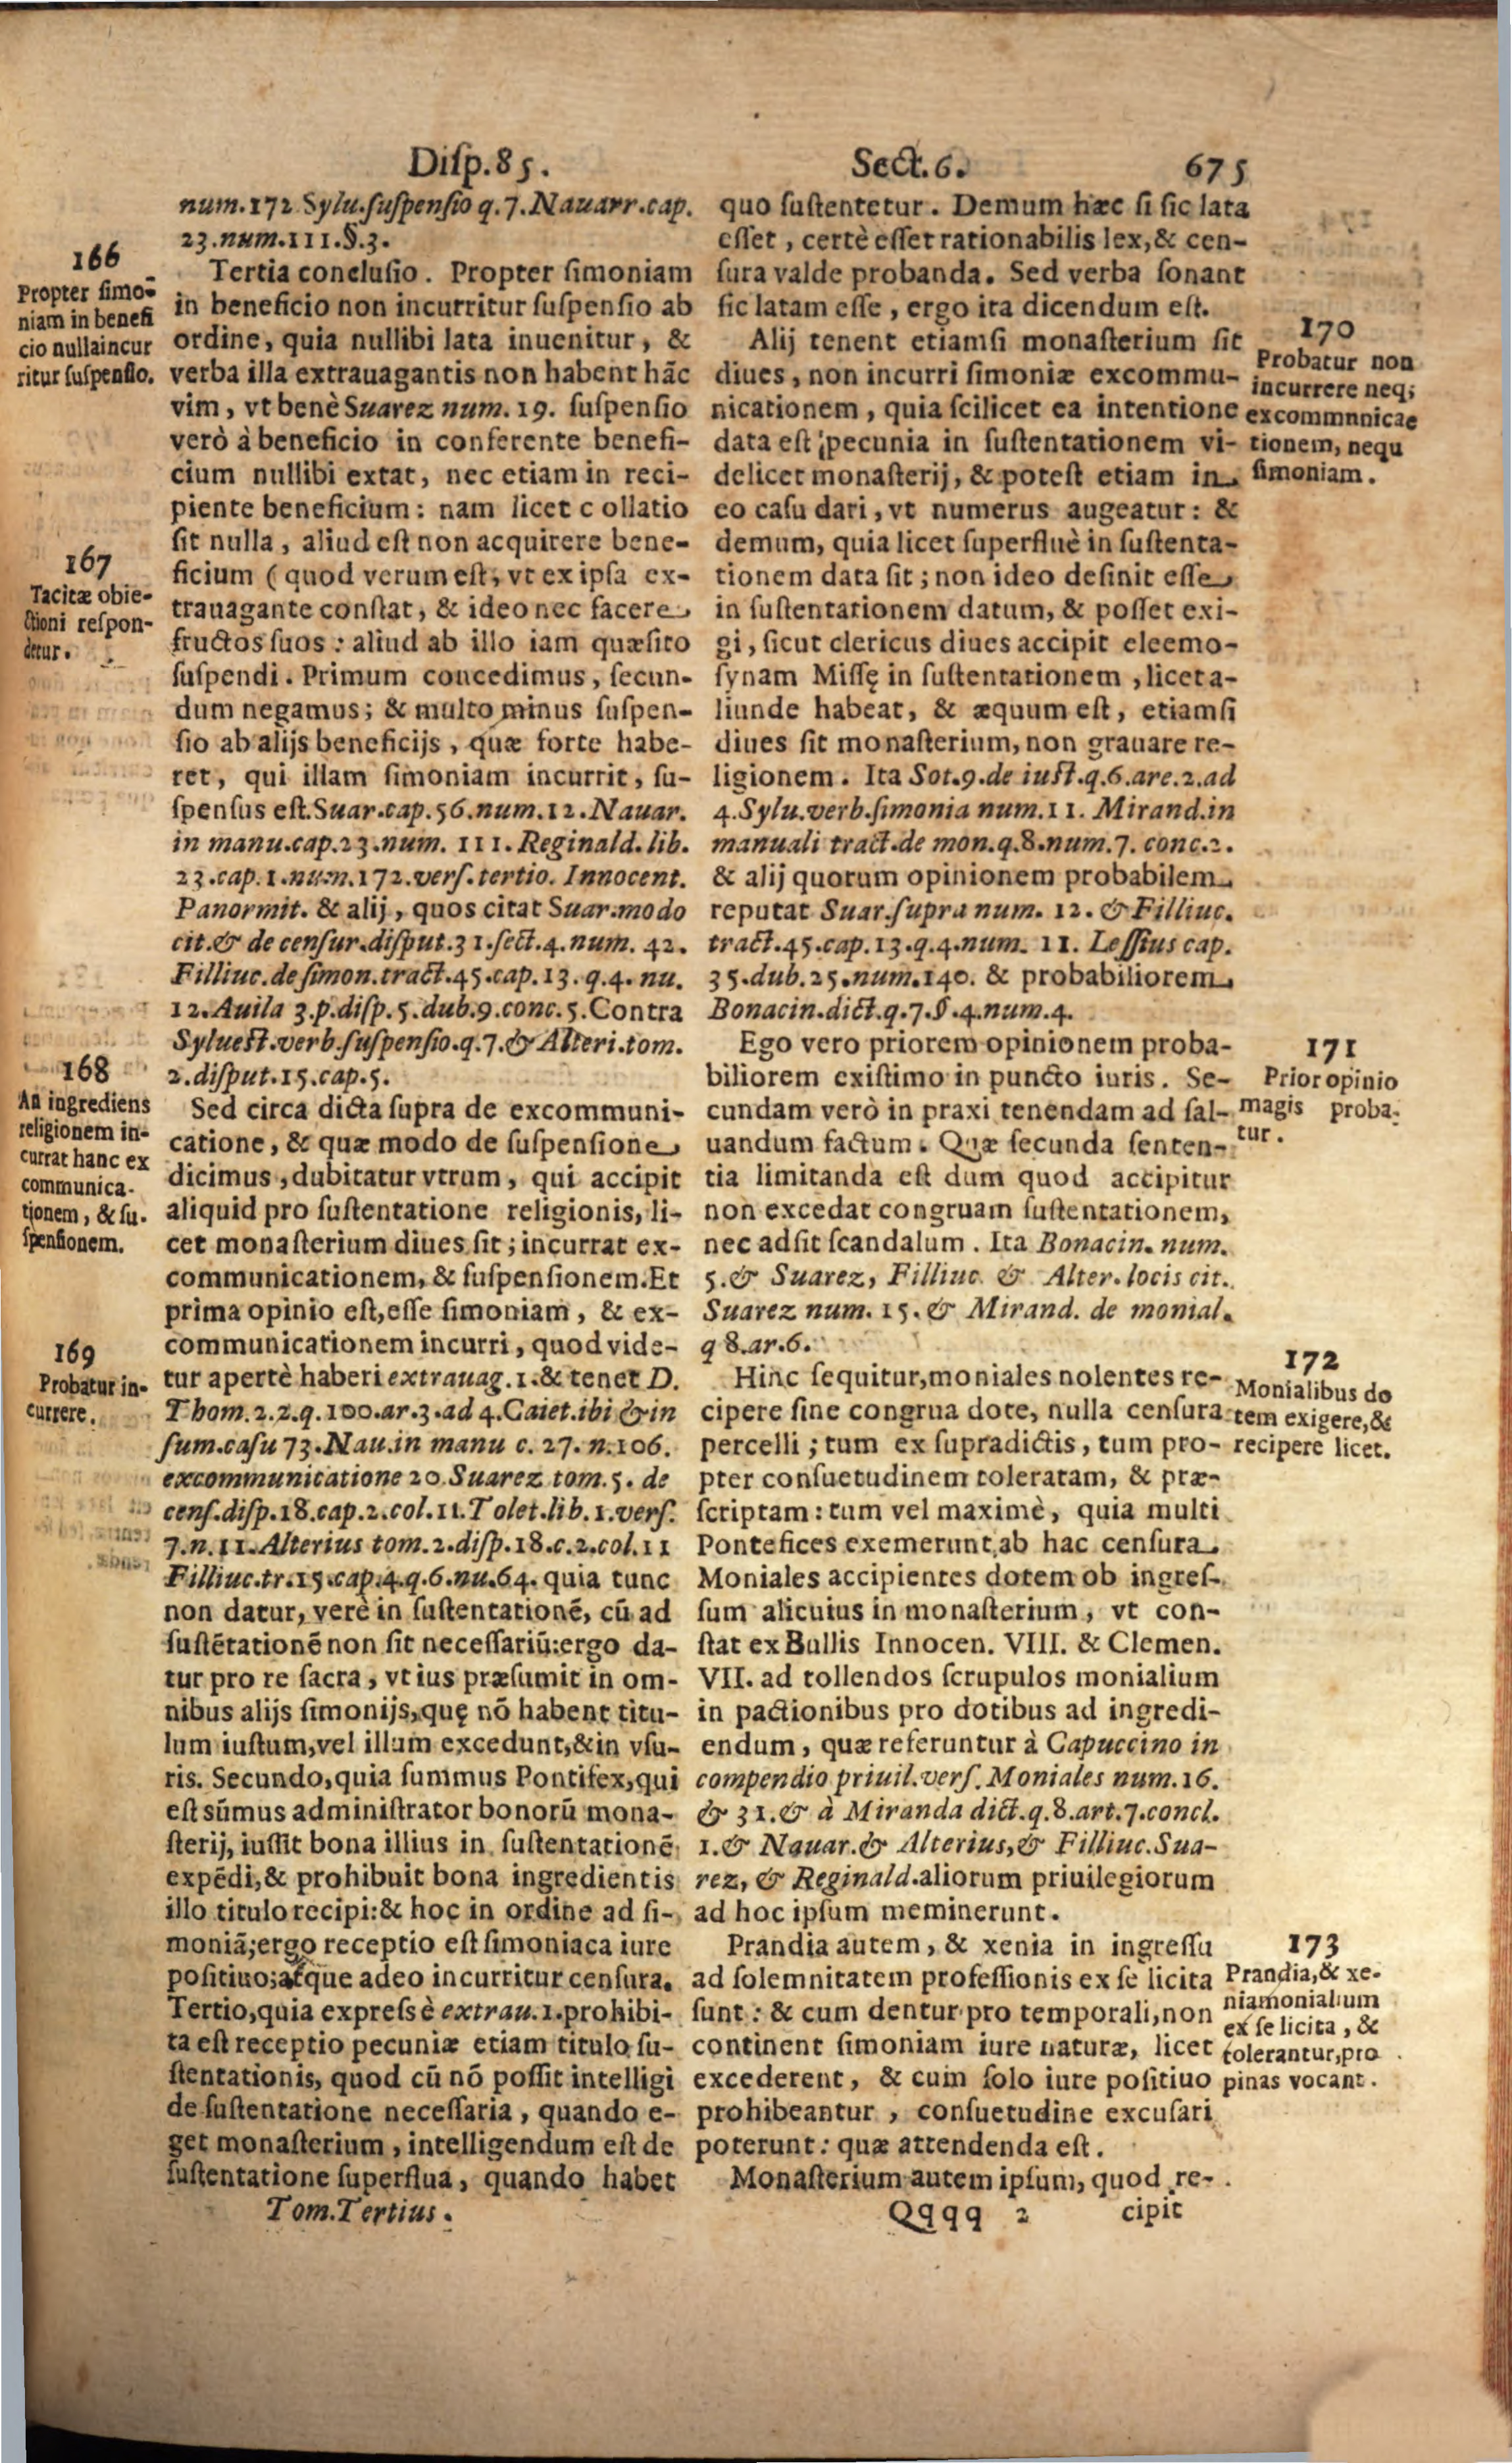 Diſp.85. Sect.6. 675
num.172 Sylu.ſuſpenſio q.7.Nauarr.cap.
23.num.111.§.3.
166
Propter ſimo-
niam in benefi
cio nullaincur
ritur ſuſpenſio.
Tertia concluſio. Propter ſimoniam
in beneficio non incurritur ſuſpenſio ab
ordine, quia nullibi lata inuenitur, &
verba illa extrauagantis non habent hāc
vim, vt benè Suarez num. 19. ſuſpenſio
verò à beneficio in conferente benefi-
cium nullibi extat, nec etiam in reci-
piente beneficium: nam licet c ollatio
ſit nulla, aliud eſt non acquirere bene-
167
Tacitæ obie-
ctioni reſpon-
detur.
ficium (quod verum eſt, vt ex ipſa ex-
trauagante conſtat, & ideo nec facere
fructos ſuos: aliud ab illo iam quæſito
ſuſpendi. Primum concedimus, ſecun-
dum negamus; & multo minus ſuſpen-
ſio ab alijs beneficijs, quæ forte habe-
ret, qui illam ſimoniam incurrit, ſu-
ſpenſus eſt.Suar.cap.56.num.12.Nauar.
in manu.cap.23.num. 111.Reginald.lib.
23.cap.1.num.172.verſ.tertio. Innocent.
Panormit. & alij, quos citat Suar.modo
cit.& de cenſur.diſput.31.ſect.4.num. 42.
Filliuc.de ſimon.tract.45.cap.13. q.4. nu.
12.Auila 3.p.diſp.5.dub.9.conc.5.Contra
Sylueſt.verb.ſuſpenſio.q.7.& Alteri.tom.
2.diſput.15.cap.5.
168
An ingrediens
religionem in-
currat hanc ex
communica-
tionem, & ſu-
ſpenſionem.
Sed circa dicta ſupra de excommuni-
catione, & quæ modo de ſuſpenſione
dicimus, dubitatur vtrum, qui accipit
aliquid pro ſuſtentatione religionis, li-
cet monaſterium diues ſit; incurrat ex-
communicationem, & ſuſpenſionem.Et
prima opinio eſt,eſſe ſimoniam, & ex-
communicationem incurri, quod vide-
169
Probatur in-
currere.
tur apertè haberi extrauag.1.& tenet D.
Thom.2.2.q.100.ar.3.ad 4.Caiet.ibi & in
ſum.caſu 73.Nau.in manu c. 27. n.106.
excommunicatione 20 Suarez tom.5. de
cenſ.diſp.18.cap.2.col.11.Tolet.lib.1.verſ.
7.n.11.Alterius tom.2.diſp.18.c.2.col.11
Filliuc.tr.15.cap.4.q.6.nu.64. quia tunc
non datur, verè in ſuſtentationē, cū ad
ſuſtētationē non ſit neceſſariū:ergo da-
tur pro re ſacra, vt ius præſumit in om-
nibus alijs ſimonijs, quę nō habent titu-
lum iuſtum,vel illum excedunt,&in vſu-
ris. Secundo,quia ſummus Pontifex,qui
eſt sūmus adminiſtrator bonorū mona-
ſterij, iuſſit bona illius in ſuſtentationē
expēdi,& prohibuit bona ingredientis
illo titulo recipi:& hoc in ordine ad ſi-
moniā;ergo receptio eſt ſimoniaca iure
poſitiuo;atque adeo incurritur cenſura.
Tertio,quia expreſsè extrau.1.prohibi-
ta eſt receptio pecuniæ etiam titulo ſu-
ſtentationis, quod cū nō poſſit intelligi
de ſuſtentatione neceſſaria, quando e-
get monaſterium, intelligendum eſt de
ſuſtentatione ſuperflua, quando habet
Tom.Tertius.
quo ſuſtentetur. Demum hæc ſi ſic lata
eſſet, certè eſſet rationabilis lex,& cen-
ſura valde probanda. Sed verba ſonant
ſic latam eſſe, ergo ita dicendum eſt.
170
Probatur non
incurrere neq;
excommnnicae
tionem, nequ
ſimoniam.
Alij tenent etiamſi monaſterium ſit
diues, non incurri ſimoniæ excommu-
nicationem, quia ſcilicet ea intentione
data eſt pecunia in ſuſtentationem vi-
delicet monaſterij, & poteſt etiam in
eo caſu dari, vt numerus augeatur: &
demum, quia licet ſuperfluè in ſuſtenta-
tionem data ſit; non ideo deſinit eſſe
in ſuſtentationem datum, & poſſet exi-
gi, ſicut clericus diues accipit eleemo-
ſynam Miſſę in ſuſtentationem, licet a-
liunde habeat, & æquum eſt, etiamſi
diues ſit monaſterium, non grauare re-
ligionem. Ita Sot.9.de iuſt.q.6.are.2.ad
4.Sylu.verb.ſimonia num.11. Mirand.in
manuali tract.de mon.q.8.num.7. conc.2.
& alij quorum opinionem probabilem
reputat Suar.ſupra num. 12. & Filliuc.
tract.45.cap.13.q.4.num. 11. Leſſius cap.
35.dub.25.num.140. & probabiliorem
Bonacin.dict.q.7.§.4.num.4.
171
Prior opinio
magis proba-
tur.
Ego vero priorem opinionem proba-
biliorem exiſtimo in puncto iuris. Se-
cundam verò in praxi tenendam ad ſal-
uandum factum. Quæ ſecunda ſenten-
tia limitanda eſt dum quod accipitur
non excedat congruam ſuſtentationem,
nec adſit ſcandalum. Ita Bonacin. num.
5.& Suarez, Filliuc. & Alter.locis cit.
Suarez num. 15.& Mirand. de monial.
q 8.ar.6.
172
Monialibus do
tem exigere,&
recipere licet.
Hinc ſequitur,moniales nolentes re-
cipere ſine congrua dote, nulla cenſura
percelli; tum ex ſupradictis, tum pro-
pter conſuetudinem toleratam, & præ-
ſcriptam: tum vel maximè, quia multi
Pontefices exemerunt ab hac cenſura
Moniales accipientes dotem ob ingreſ-
ſum alicuius in monaſterium, vt con-
ſtat ex Bullis Innocen. VIII. & Clemen.
VII. ad tollendos ſcrupulos monialium
in pactionibus pro dotibus ad ingredi-
endum, quæ referuntur à Capuccino in
compendio priuil.verſ.Moniales num.16.
& 31.& à Miranda dict.q.8.art.7.concl.
1.& Nauar.& Alterius,& Filliuc.Sua-
rez, & Reginald.aliorum priuilegiorum
ad hoc ipſum meminerunt.
173
Prandia,& xe-
niamonialium
ex ſe licita, &
tolerantur,pro
pinas vocant.
Prandia autem, & xenia in ingreſſu
ad ſolemnitatem profeſſionis ex ſe licita
ſunt: & cum dentur pro temporali,non
continent ſimoniam iure naturæ, licet
excederent, & cum ſolo iure poſitiuo
prohibeantur, conſuetudine excuſari
poterunt: quæ attendenda eſt.
Monaſterium autem ipſum, quod re-
Qqqq 2 cipit